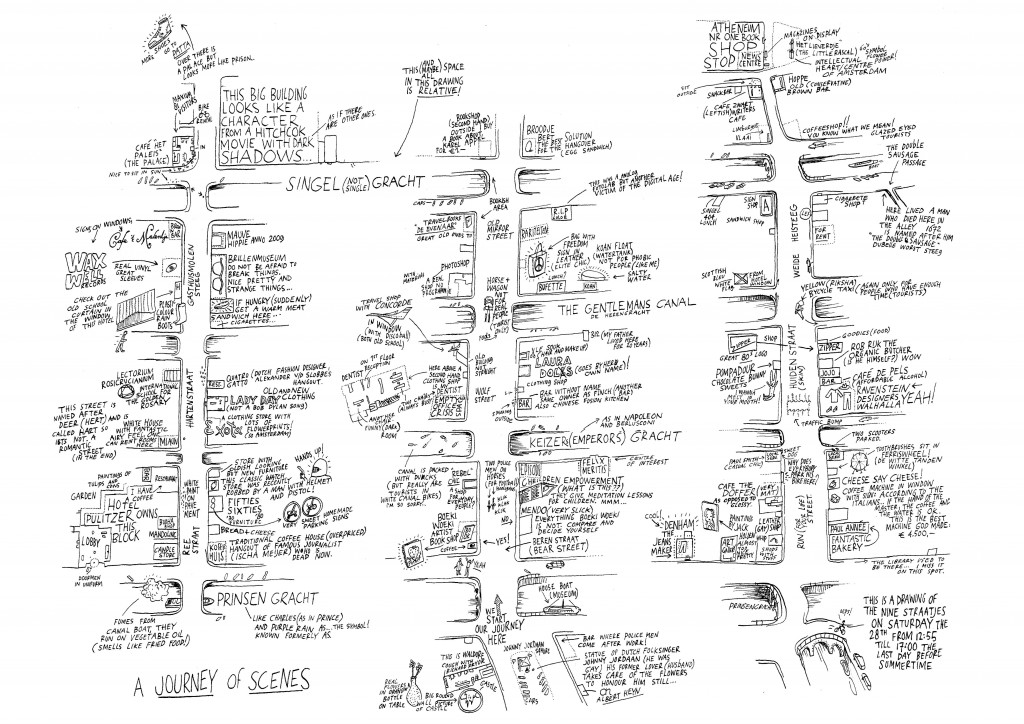 MORE SHOES
GO TO
PATTA
OVER THERE IS
A PALACE BUT
LOOKS MORE LIKE PRISON.
BIKE
ROUTE
CAFÉ HET
PALEIS
(THE PALACE)
NICE TO SIT IN SUN
THIS BIG BUILDING
LOOKS LIKE A
CHARACTER
FROM A HITCHCOK
MOVIE WITH DARK
SHADOWS...
AS IF THERE
ARE OTHER ONES.
(AND
(MAYBE)
THIS SPACE
ALL
IN THIS DRAWING
IS RELATIVE!
BOOKSHOP
(SECOND HAND)
OUTSIDE
A BOOK ABOUT
KAREL APPEL
FOR €
BROODJE
BERT
THE BEST SOLUTION
FOR THE HANGOVER
(EGG SANDWICH)
ATHENEUM
NR ONE BOOK
SHOP
STOP
NEWS
CENTRE
MAGAZINES
ON DISPLAY
HET LIEVERDJE
(THE LITTLE RASCAL) 60'S SYMBOL
FLOWER POWER!
INTELLECTUAL
HEART/CENTRE
OF AMSTERDAM
SIT
OUTSIDE
SNACKBAR
HOPPE
OLD (CONSERVATIVE)
BROWN BAR
CAFE ZWART
(LEFTISH) WRITERS
CAFE
LIMBURGSE
VLAAI
COFFEESHOP!!
YOU KNOW WHAT WE MEAN!
GLAZED EYED
TOURISTS
THE DOUBLE
SAUSAGE
PASSAGE
SINGEL (NOT SINGLE) GRACHT
CARS
BOOKISH
AREA
THIS WAS A ANALOG
FOTOLAB BUT ANOTHER
VICTIM OF THE DIGITAL AGE!
SIGNS ON WINDOWS
WAX
WELL
RECORDS
REAL VINYL
GREAT
SLEEVES
CHECK OUT
THE OLD
SCHOOL
CURTAIN IN
THE WINDOW
OF THIS HOTEL
RAIN
BOOTS
GASTHUISMOLEN
STEEG
MAUVE
HIPPIE ANNO 2009
BRILLENMUSEUM
DO NOT BE AFRAID TO
BREAK THINGS,
NICE PRETTY AND
STRANGE THINGS...
IF HUNGRY (SUDDENLY)
GET A WARM MEAT
SANDWICH HERE...
CIGARETTES...
TRAVELBOOKS
'DE EVENAAR'
GREAT OLD
OLD
MIRROR
STREET
PHOTOSHOP
A REAL
SHOP NO
PROGRAMME
HORSE +
WAGON
NOT
FOR
REAL
PEOPLE
R.I.P
BAG WITH
FREEDOM
SIGN IN
LEATHER
(ELITE CHIC)
KOAN FLOAT
(WATERTANK)
NOT FOR PHOBIC
PEOPLE (LIKE ME)
SALTY
WATER
LUNCH
BUFFETTE
KOAN
SINGEL
404
LUNCH
SANDWICH SHOP
SIGN
SHOP
A
HEISTEEG
WEIDE
CIGARETTE
SHOP
FOR
RENT
HERE LIVED A MAN
WHO DIED HERE IN
THE ALLEY 1672
IS NAMED AFTER HIM
"THE DOUBLE SAUSAGE"
DUBBELE WORST STEEG
SCOTTISH
ELEV
WHITE
FLAG
FROM
HOTEL
WINDOW
YELLOW (RIKSHA)
BYCYCLE TAXI
AGAIN ONLY FOR
PEOPLE WHO HAVE ENOUGH
TIME (TOURISTS)
THE GENTLEMANS CANAL
DE HERENGRACHT
TRAVEL SHOP
WITH
CONCORDE
IN
WINDOW
(WITH DISCO BALL)
(BOTH OLD SCHOOL)
ON 1ST FLOOR
RECEPTION
DENTIST
ANOTHER
FUNNY (DARK)
ROOM
HERE ABOVE A
SECOND HAND
CLOTHING SHOP
IS MY
DENTIST
EMPTY
OFFICE
CRISIS
OLD
BUILDING
NOT
ALLOWED
WOLF
STREET
BIZ (MY FATHER
LIVED HERE
FOR 20 YEARS)
(HAIR AND MAKEUP)
LAURA
DOLS (GOES BY HER
OWN NAME)
CLOTHING SHOP
BAR
BAR WITHOUT NAME
SAME OWNER AS FINCH (BAR)
ALSO CHINEES FUSION KITCHEN
SUPER
SHOP
GREAT 80'S LOGO
POMPADOUR
CHOCOLATE
SWEETS
BUNNY
HUIDEN STRAAT
(SKIN)
GOODIES (FOOD)
ZIPPER
ROB RIJK THE
ORGANIC BUTCHER
(HE HIMSELF) WOW
JOJO
BAR
CAFÉ DE PELS
(AFFORDABLE ALCOHOL)
RAVENSTEIN
DESIGNERS
WALHALLA
YEAH!
TRAFFIC BUMP
LECTORIUM
ROSICRUCIANUM
INTERNATIONAL
SCHOOL FOR
THE GOLDEN
ROSARY
THIS STREET
IS NAMED
AFTER
DEER (HERT) AND IS
CALLED HART SO
ITS NOT A
ROMANTIC
STREET
(IN THE END)
WHITE HOUSE
WITH FANTASTIC
AIRY FEEL ONE
CAN RENT ROOMS
HERE
MIJMIJ
HARTENSTRAAT
QUATRO
GATTO
(DUTCH FASHION DESIGNER,
ALEXANDER V/D SLOBBE'S
HANGOUT.
LADY DAY
OLD AND NEW
CLOTHING
(NOT A BOB DYLAN SONG)
EXOTA
A CLOTHING STORE
WITH LOTS
OF
FLOWERPRINTS!
(SO AMSTERDAM)
KEIZER (EMPERORS) GRACHT
AS IN NAPOLEON
AND BERLUSCONI
TWO SCOOTERS
PARKED
PAINTINGS OF
TULIPS AND
COWS
RESTAURANT
GARDEN
I HAVE A
COFFEE
HOTEL
PULITZER OWNS
THIS
BLOCK
LOBBY
DOORMEN
IN UNIFORM
MANDOGNE
CANDLE
STORE
WHITE
PAINT
ON
THE
PAVEMENT
REE
STRAAT
STORE WITH
OLDISH LOOKING
BUT NEW FURNITURE
THIS STORE WAS RECENTLY
ROBBED BY A MAN WITH HELMET
AND PISTOL!
HANDS UP!
FIFTIES
SIXTIES
'80 FURNITURE
VERY
SWEET HOMEMADE
PARKING SIGNS
BREAD + CHEESE
KOFFIE
HUIS
TRADITIONAL COFFEE HOUSE (OVERPRICED)
HANGOUT OF FAMOUS JOURNALIST
(ISCHA MEIJER) WHO IS
DEAD NOW.
CANAL IS PACKED
WITH DUTCHS
(BUT REALLY ARE
TOURISTS IN
WHITE CANAL BIKES)
I'M SO SORRY...
REBEL
A SHOP
FOR MANY
TWO POLICE
MEN ON
HORSES
(FOR TOURISTS)
KLIK
KLAK
KLIK
BOEKI
WOEKI
ARTIST
BOOK SHOP
COFFEE
YES!
YEAH
FELIX
MERITIS
CENTRE
OF INTEREST
CHILDREN EMPOWERMENT,
(WHAT IS THIS??)
THEY GIVE MEDITATION LESSONS
FOR CHILDREN, HMM...
MENDO (VERY SLICK)
EVERYTHING BOEKI WOEKI
IS NOT, COMPARE AND
DECIDE YOURSELF
BEREN STRAAT
(BEAR STREET)
PAUL SMITH
(CASUAL CHIC)
WHY DOES
EVERYBODY
PARK HIS
BIKE HERE!
CAFÉ THE
DOFFER (VERY
MAT)
AS OPPOSED TO
GLOSSY
COOL!
DENHAM
THE
JEANS
MAKER
ART
GALLERY
PAINTING
JACK
HOUSEN
ACROSS
TOO
PRETTY
LEATHER
(GAY) SHOP
RUN (FOR YOUR LIFE)
STREET
TOOTHBRUSHES SIT IN
FERRISWHEEL!
(DE WITTE TANDEN
WINKEL)
CHEESE SAY CHEESE!
COFFEE MACHINE IN
WINDOW ACCORDING TO THE
ITALIANS, IF THE HAND OF THE
MASTER, THE COFFEE AND
THE WATER IS OK..
THIS IS THE BEST
MACHINE GOD MADE:
€ 4.500,-
PAUL ANNÉE
FANTASTIC
BAKERY
THE LIBRARY USED TO
BE THERE... I MISS IT
ON THIS SPOT.
PRINSEN GRACHT
LIKE CHARLES (AS IN PRINCE)
AND PURPLE RAIN AS... THE SYMBOL!
KNOWN FORMERLY AS.
FUMES FROM
CANAL BOAT, THEY
RUN ON VEGETABLE OIL
(SMELLS LIKE FRIED FOOD!)
HOUSE BOAT
(MUSEUM)
PRINSENGRACHT
WE
START
OUR JOURNEY
HERE
JOHNNY JORDAAN
SQUARE
BAR WHERE POLICE MEN
COME AFTER WORK!
STATUE OF DUTCH FOLKSINGER
JOHNNY JORDAAN (HE WAS
GAY) HIS FORMER LOVER (HUSBAND)
TAKES CARE OF THE FLOWERS
TO HONOUR HIM STILL...
ALBERT HEYN.
CARS
THIS IS
CASTLE
REAL
FLOWERS
IN ORANGE
BOTTLE
ON TABLE
BIG ROUND
WALL PICTURE
OF CASTLE
A JOURNEY OF SCENES
THIS IS A DRAWING OF
THE NINE STRAATJES
ON SATURDAY THE
28TH FROM 12:55
TILL 17:00 THE
LAST DAY BEFORE
SOMMERTIME